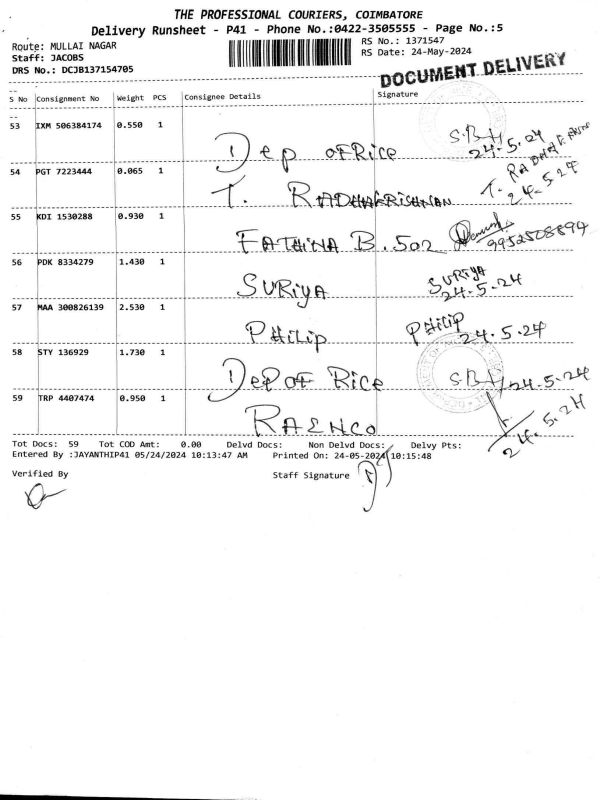 THE PROFESSIONAL COURIERS, COIMBATORE
Delivery Runsheet - P41 - Phone No.:0422-3505555 - Page No.:5
Route: MULLAI NAGAR
RS No.: 1371547
Staff: JACOBS
RS Date: 24-May-2024
DRS No.: DCJB137154705
DOCUMENT DELIVERY
S No Consignment No Weight PCS Consignee Details Signature
53 IXM 506384174 0.550 1
Dep of Rice S.B.H 24.5.24
54 PGT 7223444 0.065 1
T. RADHAKRISHNAN T. RADHAKRISHNAN 24.5.24
55 KDI 1530288 0.930 1
FATHINA B.502 9952508894
56 PDK 8334279 1.430 1
SURIYA SURIYA 24.5.24
57 MAA 300826139 2.530 1
PHILIP PHILIP 24.5.24
58 STY 136929 1.730 1
Dep of Rice S.B.H 24.5.24
59 TRP 4407474 0.950 1
RAENCO 24.5.24
Tot Docs: 59 Tot COD Amt: 0.00 Delvd Docs: Non Delvd Docs: Delvy Pts:
Entered By :JAYANTHIP41 05/24/2024 10:13:47 AM Printed On: 24-05-2024 10:15:48
Verified By Staff Signature